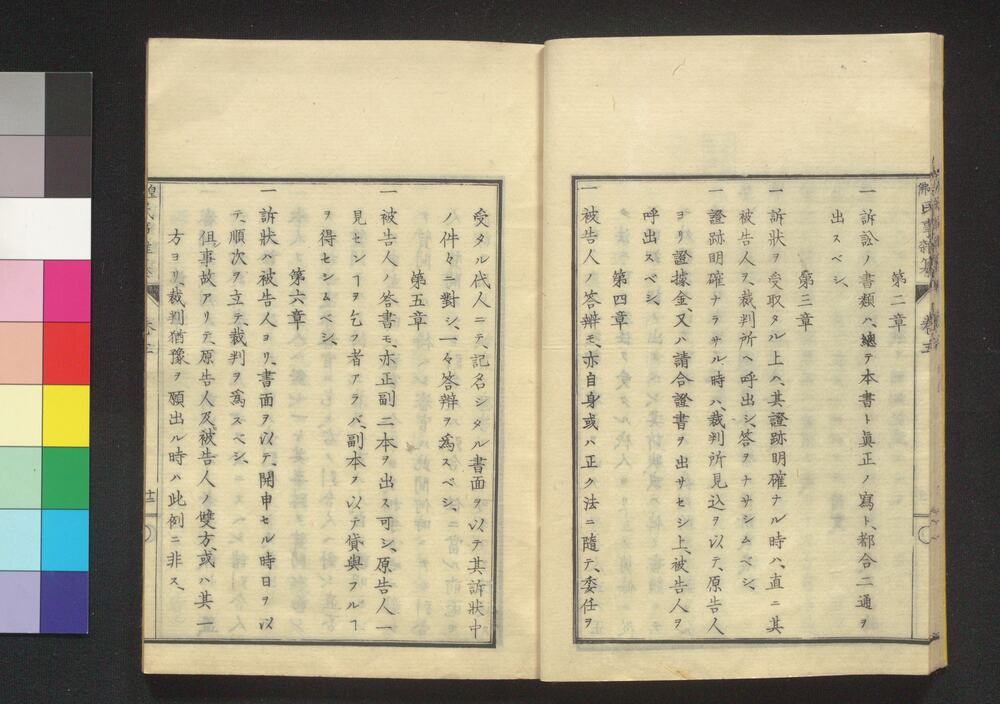 第二章
一訴訟ノ書類ハ、總テ本書ト眞正ノ寫ト、都合二通ヲ
出スベシ、
第三章
一訴狀ヲ受取タル上ハ、其證跡明確ナル時ハ、直ニ其
被告人ヲ、裁判所ヘ呼出シ、答ヲナサシムベシ、
一證跡明確ナラサル時ハ、裁判所見込ヲ以テ、原告人
ヨリ證據金、又ハ請合證書ヲ出サセシ上、被告人ヲ
呼出スベシ、
第四章
一被告人ノ答辯モ、亦自身或ハ正ク法ニ隨テ、委任ヲ
受タル代人ニテ、記名シタル書面ヲ以テ其訴狀中
ノ件々ニ對シ、一々答辯ヲ爲スベシ、
第五章
一被告人ノ答書モ、亦正副二本ヲ出ス可シ、原告人一
見センヿヲ乞フ者アラバ、副本ヲ以テ貸與フルヿ
ヲ得セシムベシ、
第六章
一訴狀ハ被告人ヨリ、書面ヲ以テ、開申セル時日ヲ以
テ、順次ヲ立テ、裁判ヲ爲スベシ、
但事故アリテ、原告人及被告人ノ雙方、或ハ其一
方ヨリ、裁判猶豫ヲ願出ル時ハ此例ニ非ス、